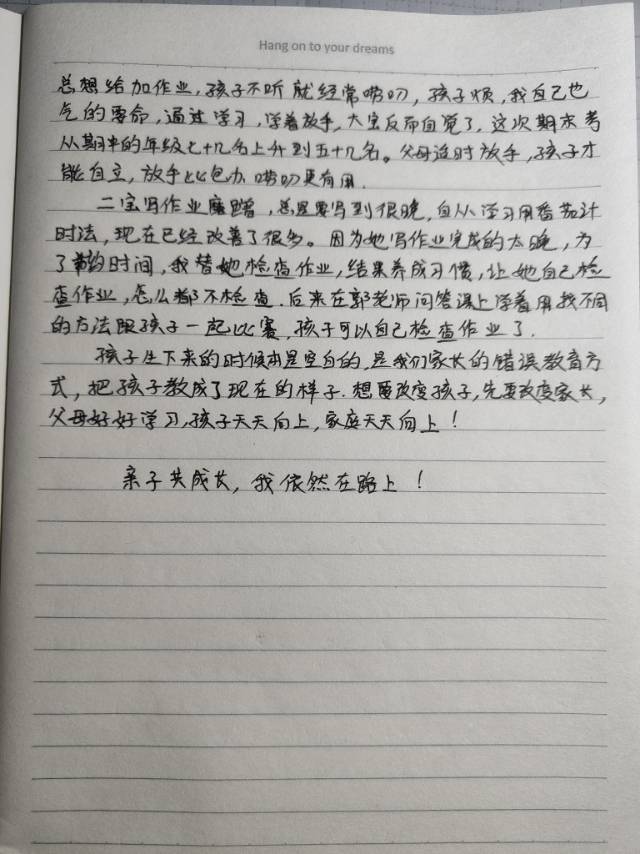 Hang on to your dreams
总想给加作业,孩子不听就经常唠叨,孩子烦,我自己也
气的要命,通过学习,学着放手,大宝反而自觉了,这次期末考
从期中的年级七十几名上升到五十几名。父母适时放手,孩子才
能自立,放手比包办唠叨更有用.
二宝写作业磨蹭,总是要写到很晚,自从学习用番茄计
时法,现在已经改善了很多。因为她写作业完成的太晚,为
了节约时间,我替她检查作业,结果养成习惯,让她自己检
查作业,怎么都不检查.后来在郭老师问答课上学着用找不同
的方法跟孩子一起比赛,孩子可以自己检查作业了.
孩子生下来的时候本是空白的,是我们家长的错误教育方
式,把孩子教成了现在的样子.想要改变孩子,先要改变家长,
父母好好学习,孩子天天向上,家庭天天向上!
亲子共成长,我依然在路上!